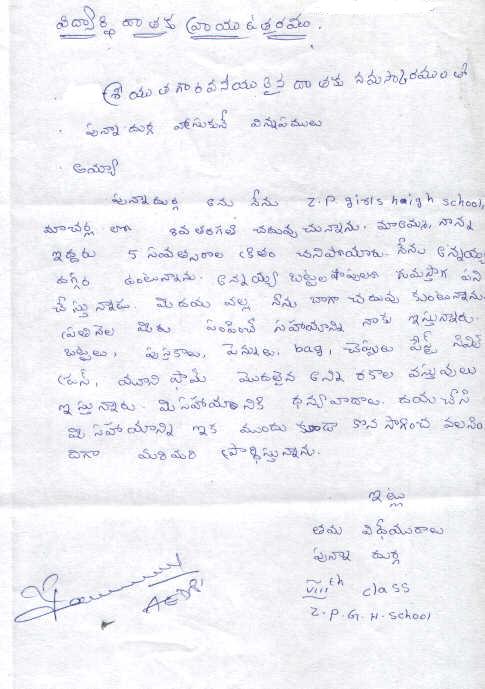 విద్యార్థి దాతకు వ్రాయు ఉత్తరము.
శ్రీయుత గౌరవనీయులైన దాతకు నమస్కారములతో
పున్నా దుర్గ వ్రాసుకునే విన్నపములు
అయ్యా
పున్నా దుర్గ అను నేను Z.P. girls haigh school,
మాచర్ల లో 8వ తరగతి చదువు చున్నాను. మాఅమ్మ, నాన్న
ఇద్దరు 5 సంవత్సరాల క్రితం చనిపోయారు. నేను అన్నయ్య
దగ్గర ఉంటున్నాను. అన్నయ్య బట్టల షాపులో గుమస్తాగ పని
చేస్తున్నాడు. మీ దయ వల్ల నేను బాగా చదువు కుంటున్నాను.
ప్రతినెల మీరు పంపించే సహాయాన్ని నాకు ఇస్తున్నారు.
బట్టలు, పుస్తకాలు, పెన్నులు, bag, చెప్పులు
యూని ఫామ్ మొదలైన అన్ని రకాల వస్తువులు
ఇస్తున్నారు. మీ సహాయానికి ధన్యవాదాలు. దయచేసి
మీ సహాయాన్ని ఇక ముందు కూడా కొన సాగించ వలసిం
దిగా మరిమరి ప్రార్థిస్తున్నాను.
ఇట్లు
తమ విధేయురాలు
పున్నా దుర్గ
VIIIth class
Z.P.G.H. School